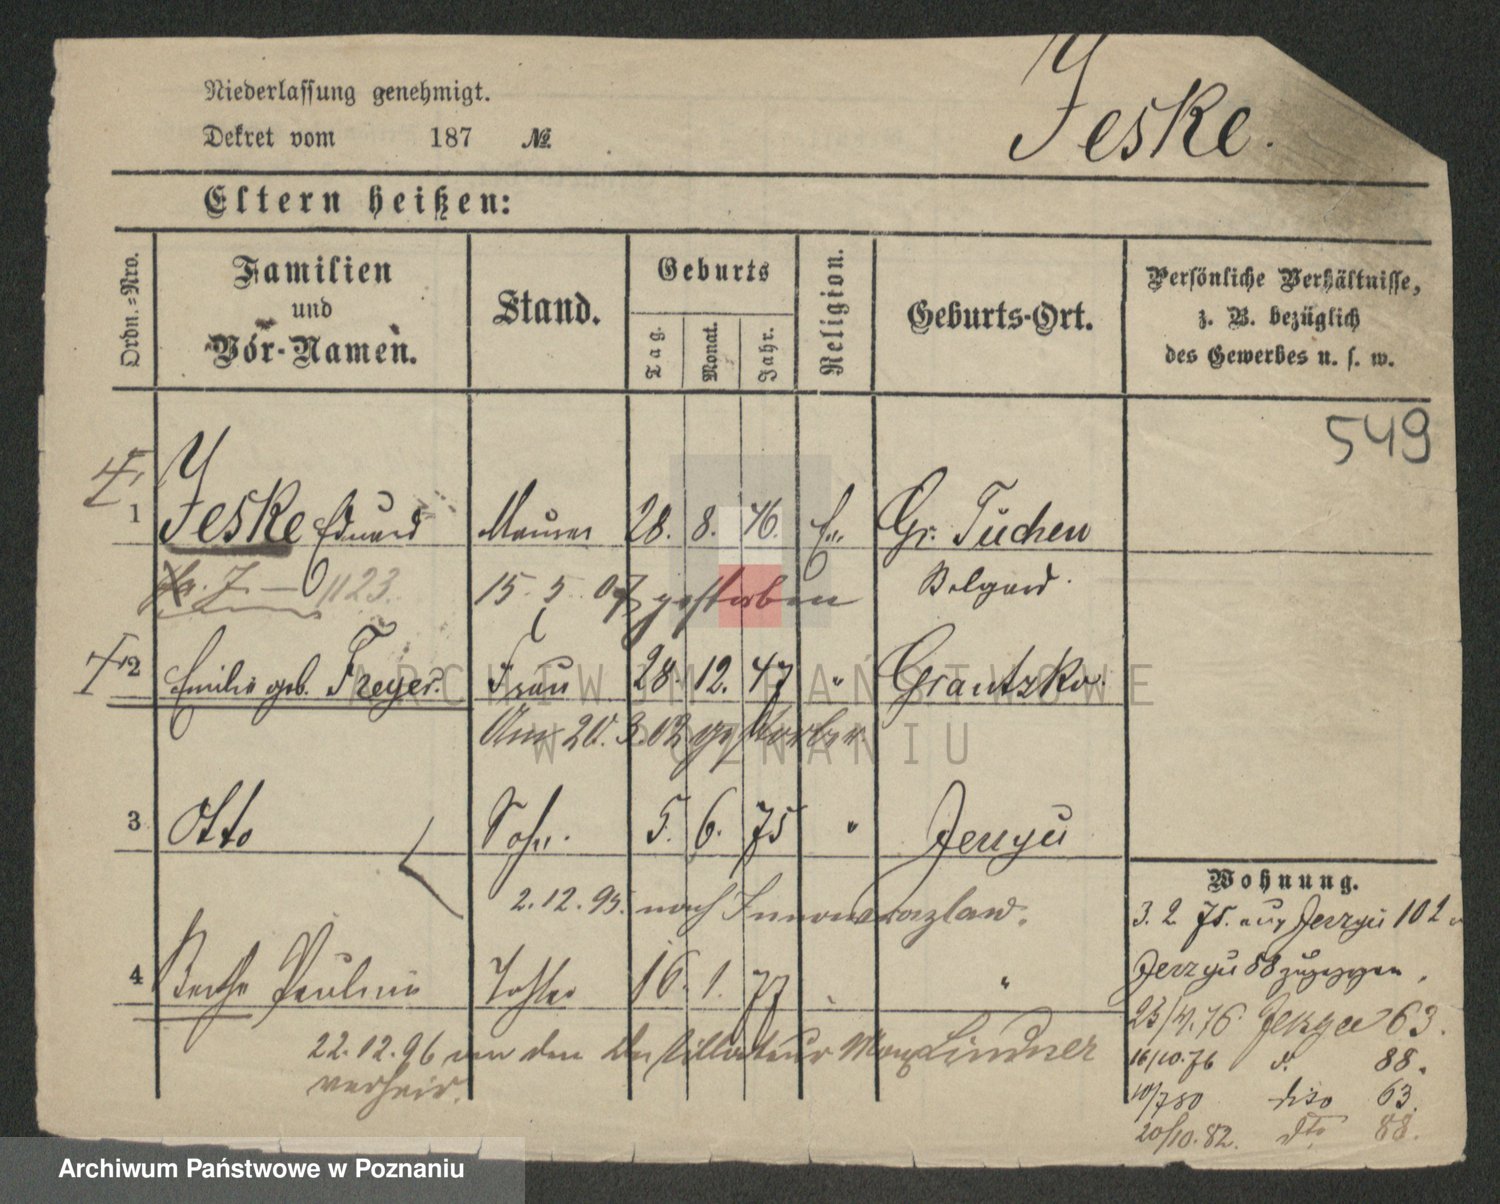 Jeske.
Niederlassung genehmigt.
Dekret vom 187 №
Eltern heißen:
Ordn.=Nro.
Familien und Vor-Namen.
Stand.
Geburts
Tag. Monat. Jahr.
Religion.
Geburts-Ort.
Persönliche Verhältnisse, z. B. bezüglich des Gewerbes u. s. w.
549
1 Jeske Eduard Maurer 28. 8. 46. Ev. Gr. Tuchen
1123. 15. 5. 07 gestorben Belgard.
2 Emilie geb. Freyer. Frau 28. 12. 47 " Grantzko.
Am 20. 3. 02 gestorben
3 Otto Sohn. 5. 6. 75 " Jerzyu
2. 12. 95. nach Inowrazlaw.
4 Bertha Pauline Tochter 16. 1. 77 "
22. 12. 96 an den Destillateur Max Lindner
verheir.
Wohnung.
3. 2. 75. aus Jerzyu 102 n
Jerzyu 88 zugezogen.
23/4. 76. Jerzyce 63.
16/10. 76 do. 88.
10/7 80 dito 63.
20/10. 82. dto 88.
ARCHIWUM PAŃSTWOWE
W POZNANIU
Archiwum Państwowe w Poznaniu